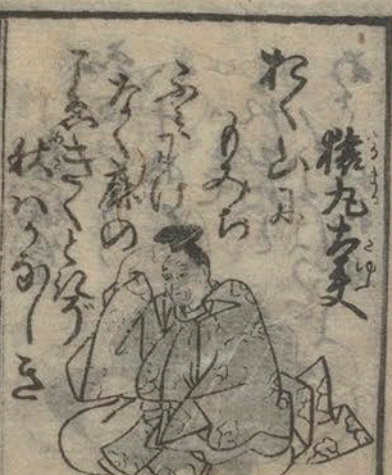 猿丸太夫
おく山に
もみぢ
ふみわけ
なく鹿の
こゑきくときぞ
秋ハかなしき